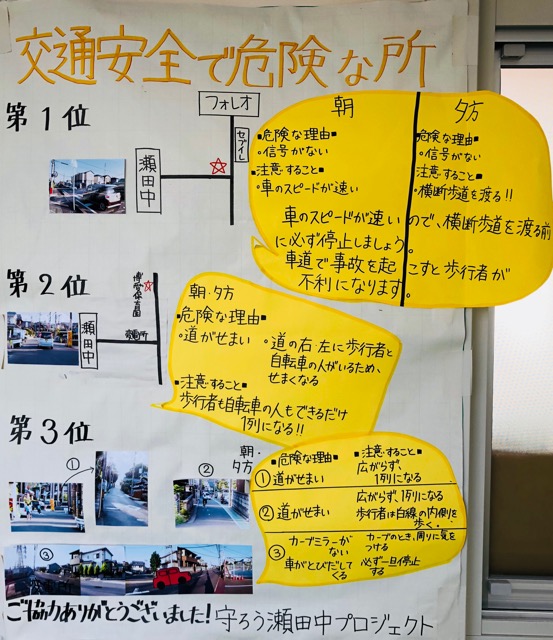 交通安全で危険な所
第1位
フォレオ
セブイレ
瀬田中
朝
■危険な理由■
・信号がない
■注意すること■
・車のスピードが速い
夕方
危険な理由■
・信号がない
注意すること■
・横断歩道を渡る!!
車のスピードが速いので、横断歩道を渡る前
に必ず停止しましょう。
車道で事故を起こすと歩行者が
不利になります。
第2位
博愛保育園
瀬田中
朝・夕方
■危険な理由■
・道がせまい
・道の右・左に歩行者と
自転車の人がいるため、
せまくなる
■注意すること■
歩行者も自転車の人もできるだけ
1列になる!!
第3位
①
②
③
朝・
夕方
■危険な理由■
■注意すること■
①道がせまい
広がらず、
1列になる
②道がせまい
広がらず、1列になる
歩行者は白線の内側を
歩く。
③カーブミラーが
ない
車がとびだして
くる
カーブのとき、周りに気を
つける
必ず一旦停止
する
ご協力ありがとうございました!守ろう瀬田中プロジェクト